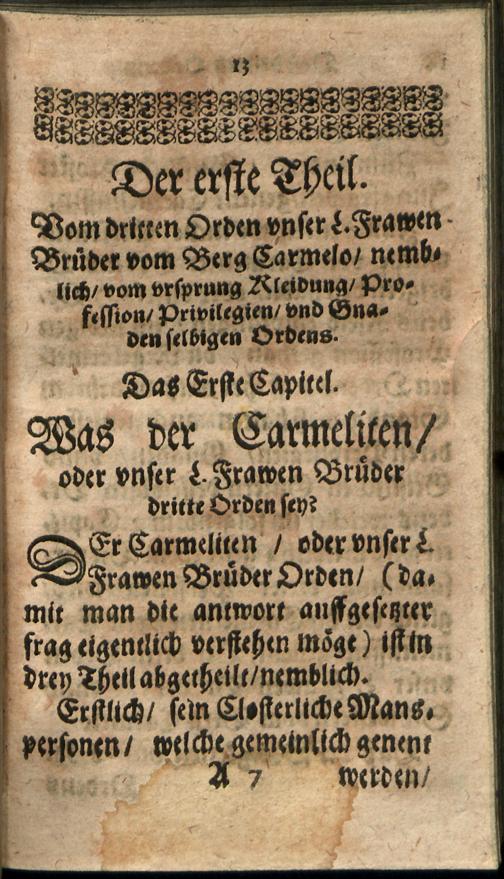 13
Der erste Theil.
Vom dritten Orden vnser L. Frawen
Brüder vom Berg Carmelo/ nemb-
lich/ vom vrsprung Kleidung/ Pro-
fession/ Privilegien/ vnd Gna-
den selbigen Ordens.
Das Erste Capitel.
Was der Carmeliten/
oder vnser L. Frawen Brüder
dritte Orden sey?
DEr Carmeliten / oder vnser L.
Frawen Brüder Orden/ (da-
mit man die antwort auffgesetzter
frag eigentlich verstehen möge) ist in
drey Theil abgetheilt/nemblich.
Erstlich/ sein Closterliche Mans-
personen/ welche gemeinlich genent
A 7 werden/